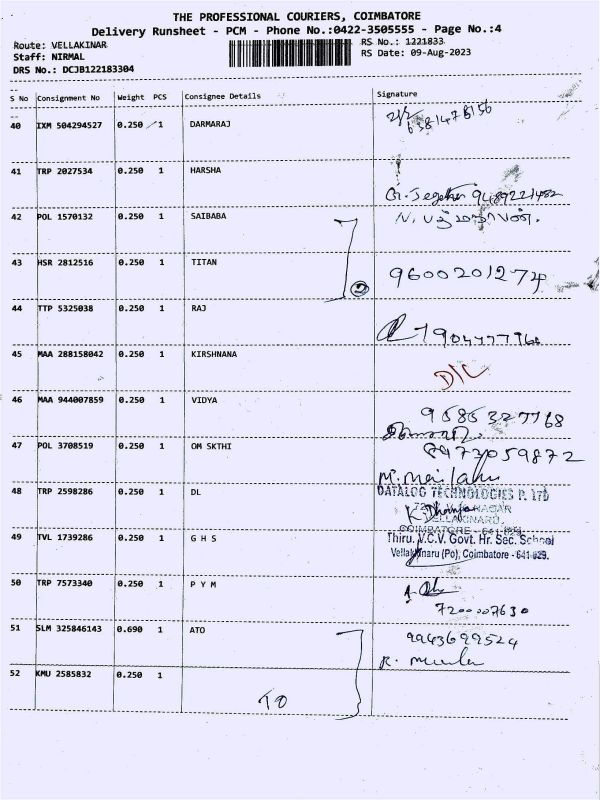 THE PROFESSIONAL COURIERS, COIMBATORE
Delivery Runsheet - PCM - Phone No.:0422-3505555 - Page No.:4
Route: VELLAKINAR RS No.: 1221833
Staff: NIRMAL RS Date: 09-Aug-2023
DRS No.: DCJB122183304
S No Consignment No Weight PCS Consignee Details Signature
40 IXM 504294527 0.250 1 DARMARAJ
6381478156
41 TRP 2027534 0.250 1 HARSHA
9489221482
42 POL 1570132 0.250 1 SAIBABA
43 HSR 2812516 0.250 1 TITAN 9600201274
2
44 TTP 5325038 0.250 1 RAJ
45 MAA 288158042 0.250 1 KIRSHNANA D/C
46 MAA 944007859 0.250 1 VIDYA
47 POL 3708519 0.250 1 OM SKTHI
48 TRP 2598286 0.250 1 DL DATALOG TECHNOLOGIES P. LTD
VELLAKINARU,
COIMBATORE - 641 029
49 TVL 1739286 0.250 1 G H S Thiru. V.C.V. Govt. Hr. Sec. School
Vellakinaru (Po), Coimbatore - 641 029.
50 TRP 7573340 0.250 1 P Y M
7200007630
51 SLM 325846143 0.690 1 ATO 9943699524
52 KMU 2585832 0.250 1
TO